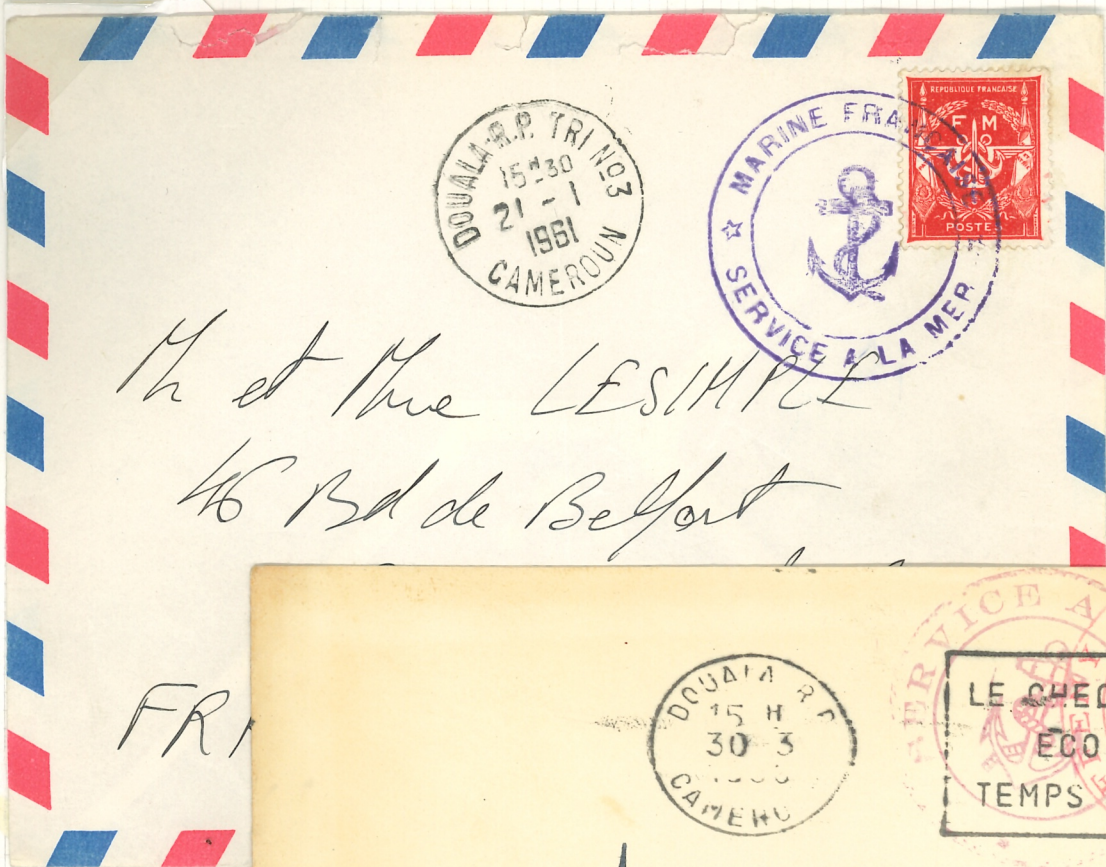 DOUALA-R.P. TRI No3
15H30
21 - 1
1961
CAMEROUN
MARINE FRANÇAISE
SERVICE A LA MER
REPUBLIQUE FRANCAISE
F M
POSTE
Mr et Mme LESIMPLE
46 Bd de Belfort
FR
DOUALA R.P
15 H
30 3
CAMERO
SERVICE A
LE CHE
ECO
TEMPS